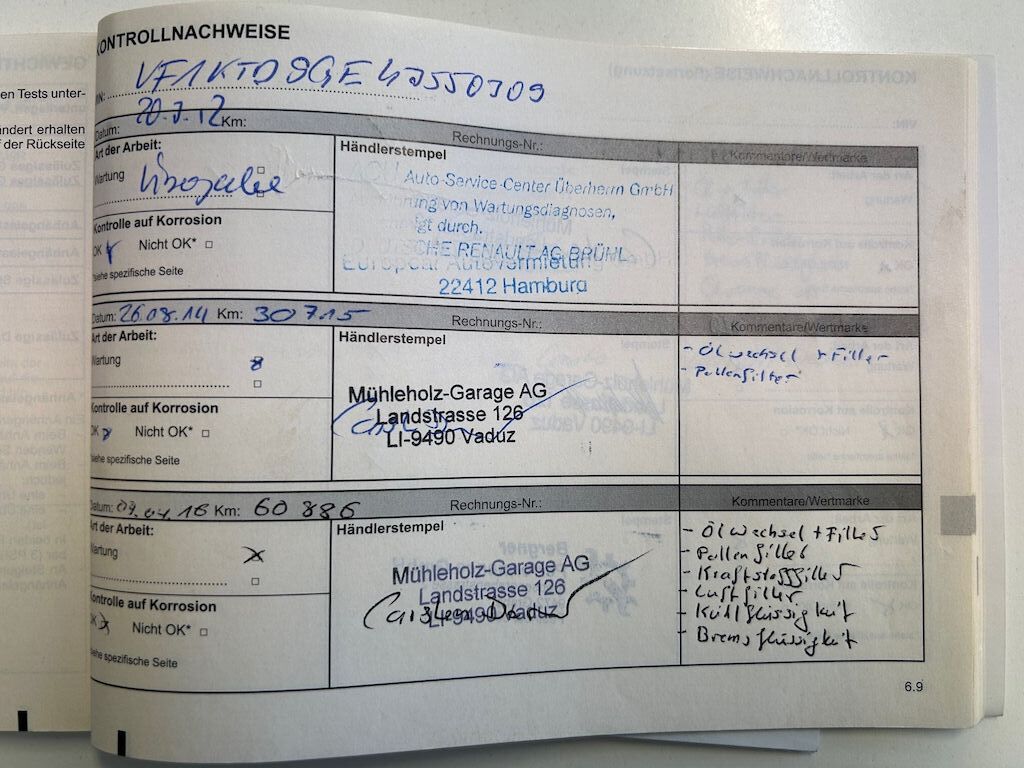 en Tests unter-
ändert erhalten
f der Rückseite
KONTROLLNACHWEISE
VIN:
Datum: 20.7.12 Km: Rechnungs-Nr.: Kommentare/Wertmarke
Art der Arbeit:
Wartung
Kontrolle auf Korrosion
OK Nicht OK*
*siehe spezifische Seite
Händlerstempel
Auto-Service-Center Überherrn GmbH
von Wartungsdiagnosen,
durch.
RENAULT AG BRÜHL
European Autovermietung
22412 Hamburg
Datum: 26.08.14 Km: 30715 Rechnungs-Nr.: Kommentare/Wertmarke
Art der Arbeit:
Wartung
Kontrolle auf Korrosion
OK Nicht OK*
*siehe spezifische Seite
Händlerstempel
Mühleholz-Garage AG
Landstrasse 126
LI-9490 Vaduz
- Ölwechsel + Filter
- Pollenfilter
Datum: 07.04.16 Km: 60 886 Rechnungs-Nr.: Kommentare/Wertmarke
Art der Arbeit:
Wartung
Kontrolle auf Korrosion
OK Nicht OK*
*siehe spezifische Seite
Händlerstempel
Mühleholz-Garage AG
Landstrasse 126
LI-9490 Vaduz
- Ölwechsel + Filter
- Pollenfilter
- Kraftstofffilter
- Luftfilter
- Kühlflüssigkeit
- Bremsflüssigkeit
6.9